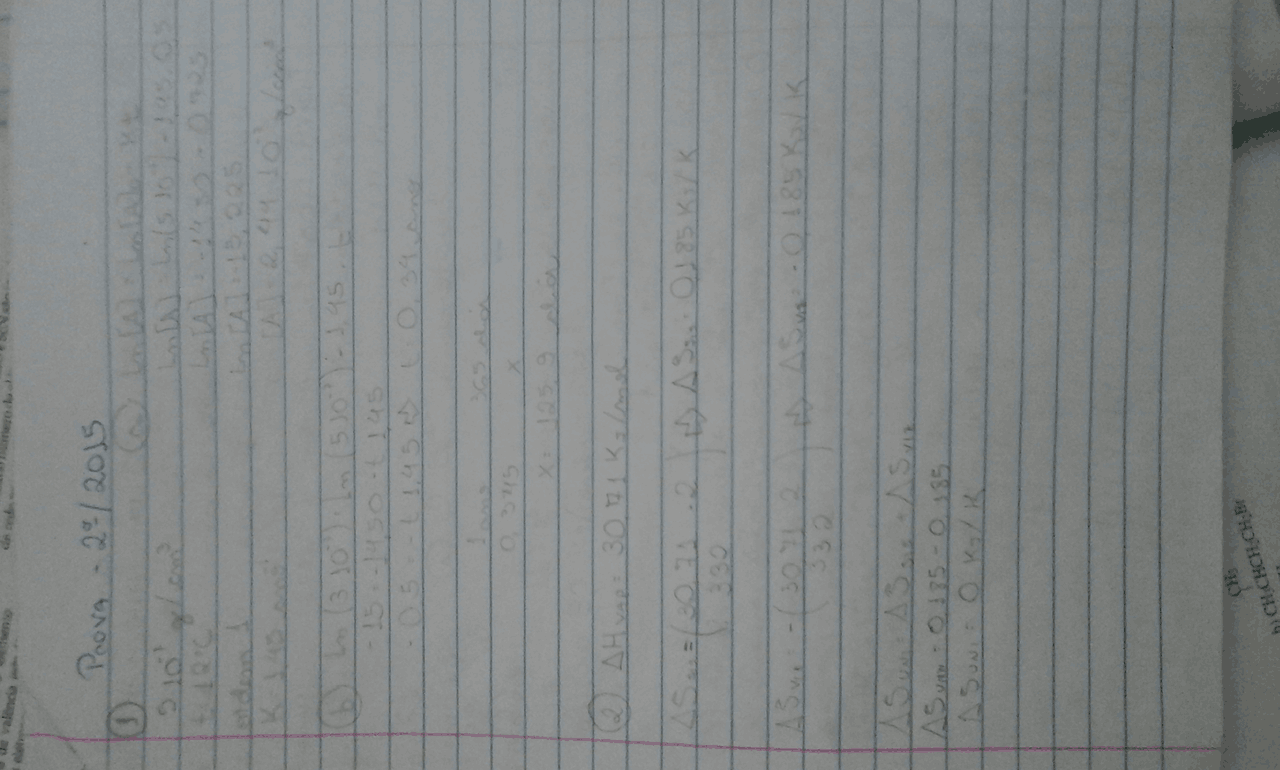 Prova - 2ª / 2015
①
5 10⁻⁷ g/cm³
t 12°C
ordem 1
K 1,45 ano⁻¹
ⓐ ln [A] = ln [A]₀ - Kt
ln [A] = ln (5 10⁻⁷) - 1,45 . 0,5
ln [A] = -14,50 - 0,725
ln [A] = -15,225
[A] = 2,44 10⁻⁷ g/cm³
ⓑ ln (3 10⁻⁷) = ln (5 10⁻⁷) - 1,45 . t
-15 = -14,50 - t 1,45
-0,5 = -t 1,45 ⇒ t = 0,34 ano
1 ano 365 dias
0,345 x
x = 125,9 dias
② ΔHvap = 30,71 KJ/mol
ΔSsis = (30,71 . 2 / 332) ⇒ ΔSsis = 0,185 KJ/K
ΔSviz = -(30,71 2 / 332) ⇒ ΔSviz = -0,185 KJ/K
ΔSuni = ΔSsis + ΔSviz
ΔSuni = 0,185 - 0,185
ΔSuni = 0 KJ/K
CH₃
CH₃CHCH₂CH₂Br